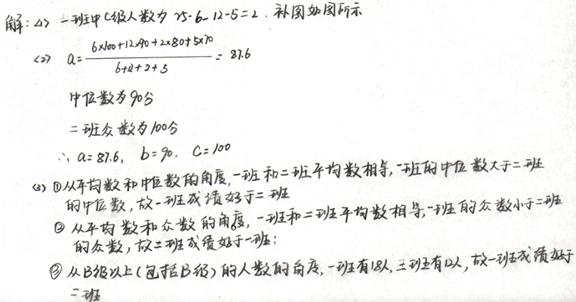 解:(1) 一班中C级人数为 25-6-12-5=2. 补图如图所示
(2) a=(6×100+12×90+2×80+5×70)/(6+12+2+5)=87.6
中位数为90分
二班众数为100分
∴ a=87.6, b=90. C=100
(3) ①从平均数和中位数的角度,一班和二班平均数相等,一班的中位数大于二班
的中位数,故一班成绩好于二班
② 从平均数和众数的角度,一班和二班平均数相等,一班的众数小于二班
的众数,故二班成绩好于一班;
③ 从B级以上(包括B级)的人数的角度,一班有18人,二班有12人,故一班成绩好于
二班